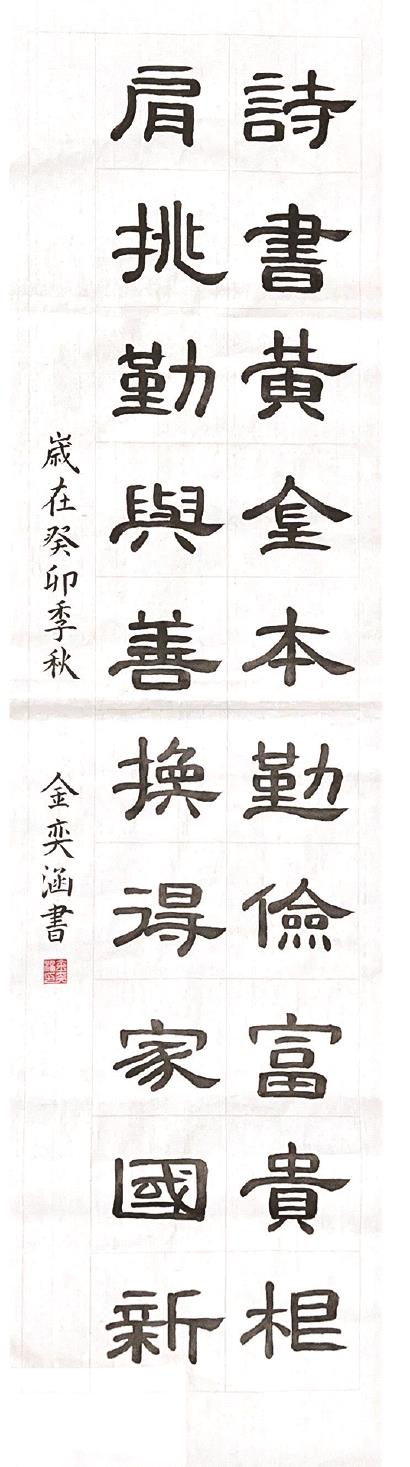 詩書黄金本勤儉富貴根
肩挑勤與善換得家國新
歲在癸卯季秋 金奕涵書